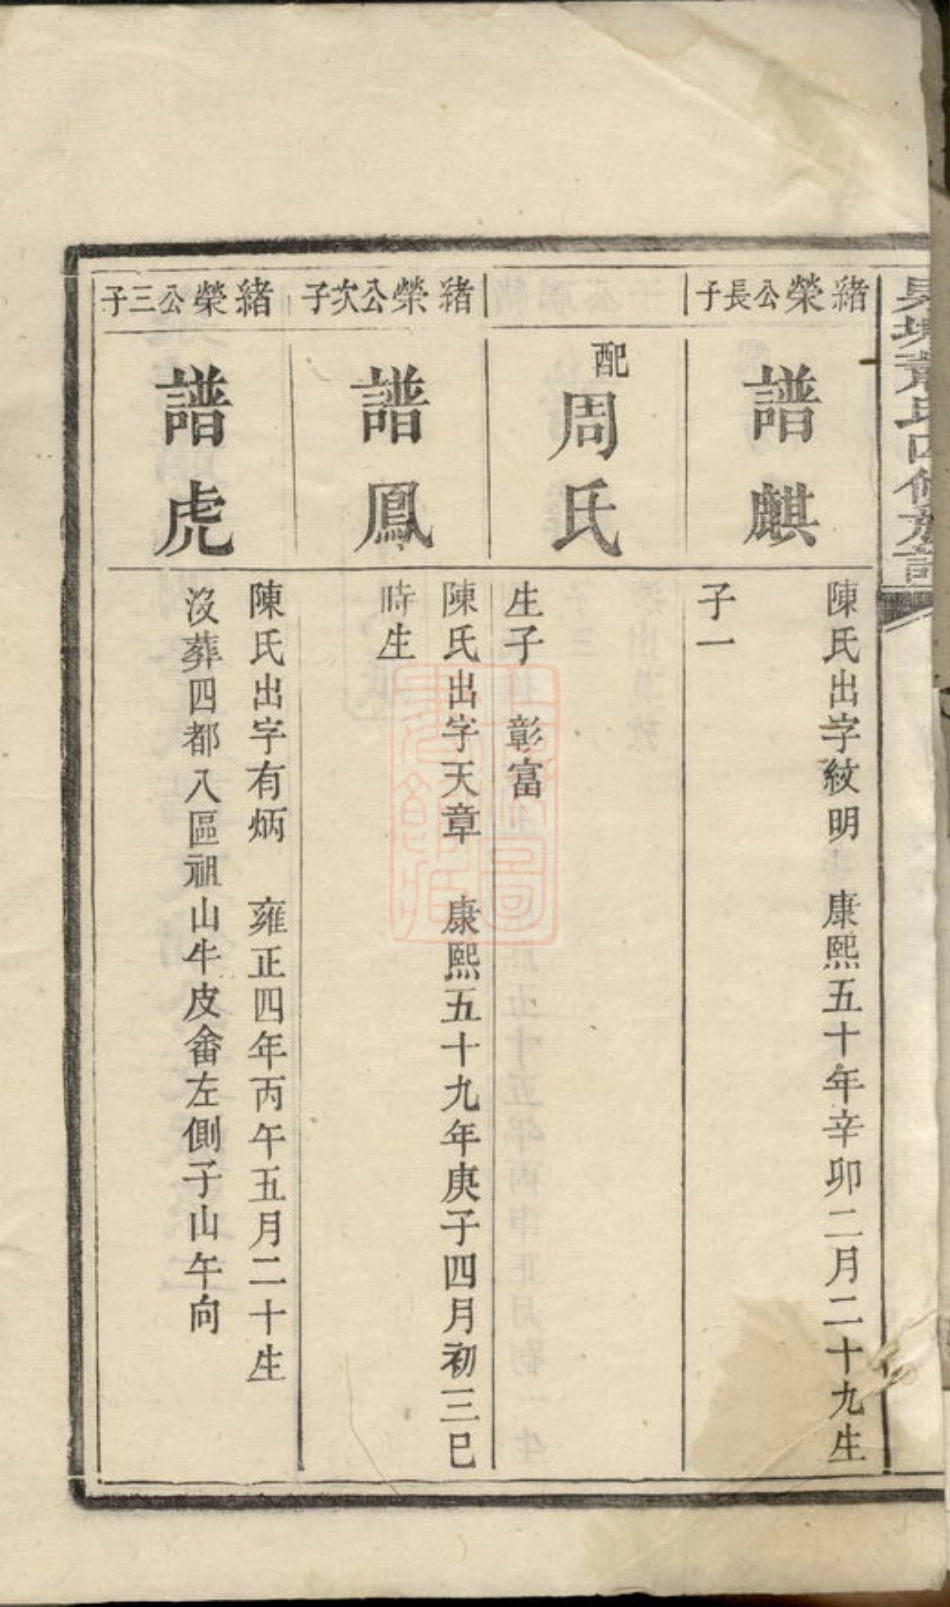 黄氏四修族譜
緒榮公長子
譜麒
陳氏出字紋明　康熙五十年辛卯二月二十九生
子一
配周氏
生子　彰富
緒榮公次子
譜鳳
陳氏出字天章　康熙五十九年庚子四月初三巳
時生
緒榮公三子
譜虎
陳氏出字有炳　雍正四年丙午五月二十生
沒葬四都八區祖山牛皮畬左側子山午向